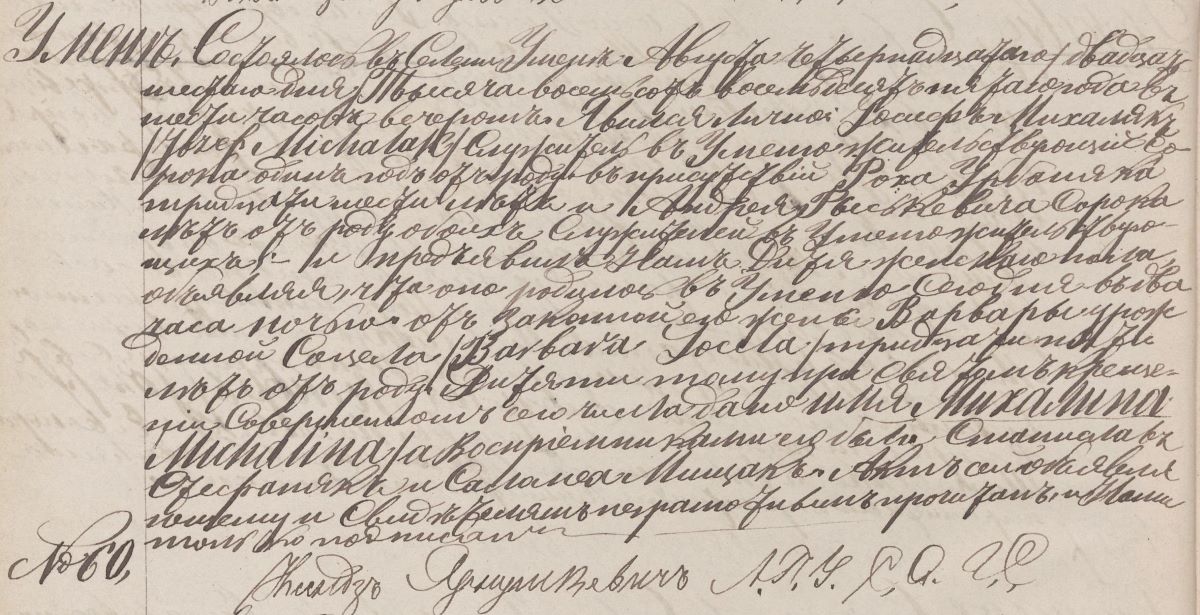 Уменъ. Состоялось въ Селеніи Уменъ Августа четырнадцатаго / двадцать
шестаго дня / Тысяча восемьсотъ восемьдесятъ пятаго года въ
часовъ вечеромъ. Явился лично Іосифъ Михалякъ
/ Józef Michalak / Служитель въ жительствующій Со-
рока одинъ годъ отъ роду въ присутствіи Роха Урбаняка
тридцати шести лѣтъ и Андрея Сорока
лѣтъ отъ роду обоихъ Служителей въ жительствую-
щихъ и предъявилъ Намъ Дитя женскаго пола,
объявляя, что оно родилось въ Сегодня въ два
часа ночью отъ законной его жены Варвары урож-
денной Соцела / Barbara Socela / тридцати пяти
лѣтъ отъ роду. Дитяти тому при Святомъ креще-
ніи совершенномъ сего числа дано имя Михалина
Michalina / а воспріемниками его были Станиславъ
Стефанякъ и Саломея Мищакъ. Актъ сей объявля
ющему и Свидѣтелямъ неграмотнымъ прочитанъ, и Нами
только подписанъ
№ 60,
Ксендзъ